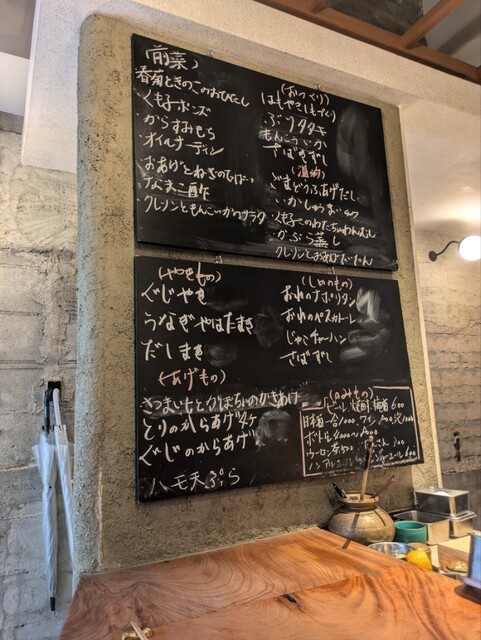 (前菜)
春菊ときのこのおひたし
・くも子ポンズ
・からすみもち
オイルサーディン
・おあげとねぎの
・なまこ酢
・クレソンともんこいかのサラダ
(おつくり)
はもやきしもづくり
・ぶりタタキ
もんこういか
・さばきずし
(温物)
・ごまどうふあげだし
・いかしゅうまい
・くも子
・かぶら蒸し
クレソンとおあげ
(やきもの)
ぐじやき
うなぎやはたまき
だしまき
(あげもの)
さつまいもとごぼうのかきあげ
とりのからあげ
ぐじのからあげ
ハモ天ぷら
(しめもの)
おれのナポリタン
おれのペスカトーレ
・じゃこチャーハン
・さばずし
(のみもの)
ビール 焼酎 梅酒 600
日本酒一合1000. ワイン
ボトル
ウーロン茶